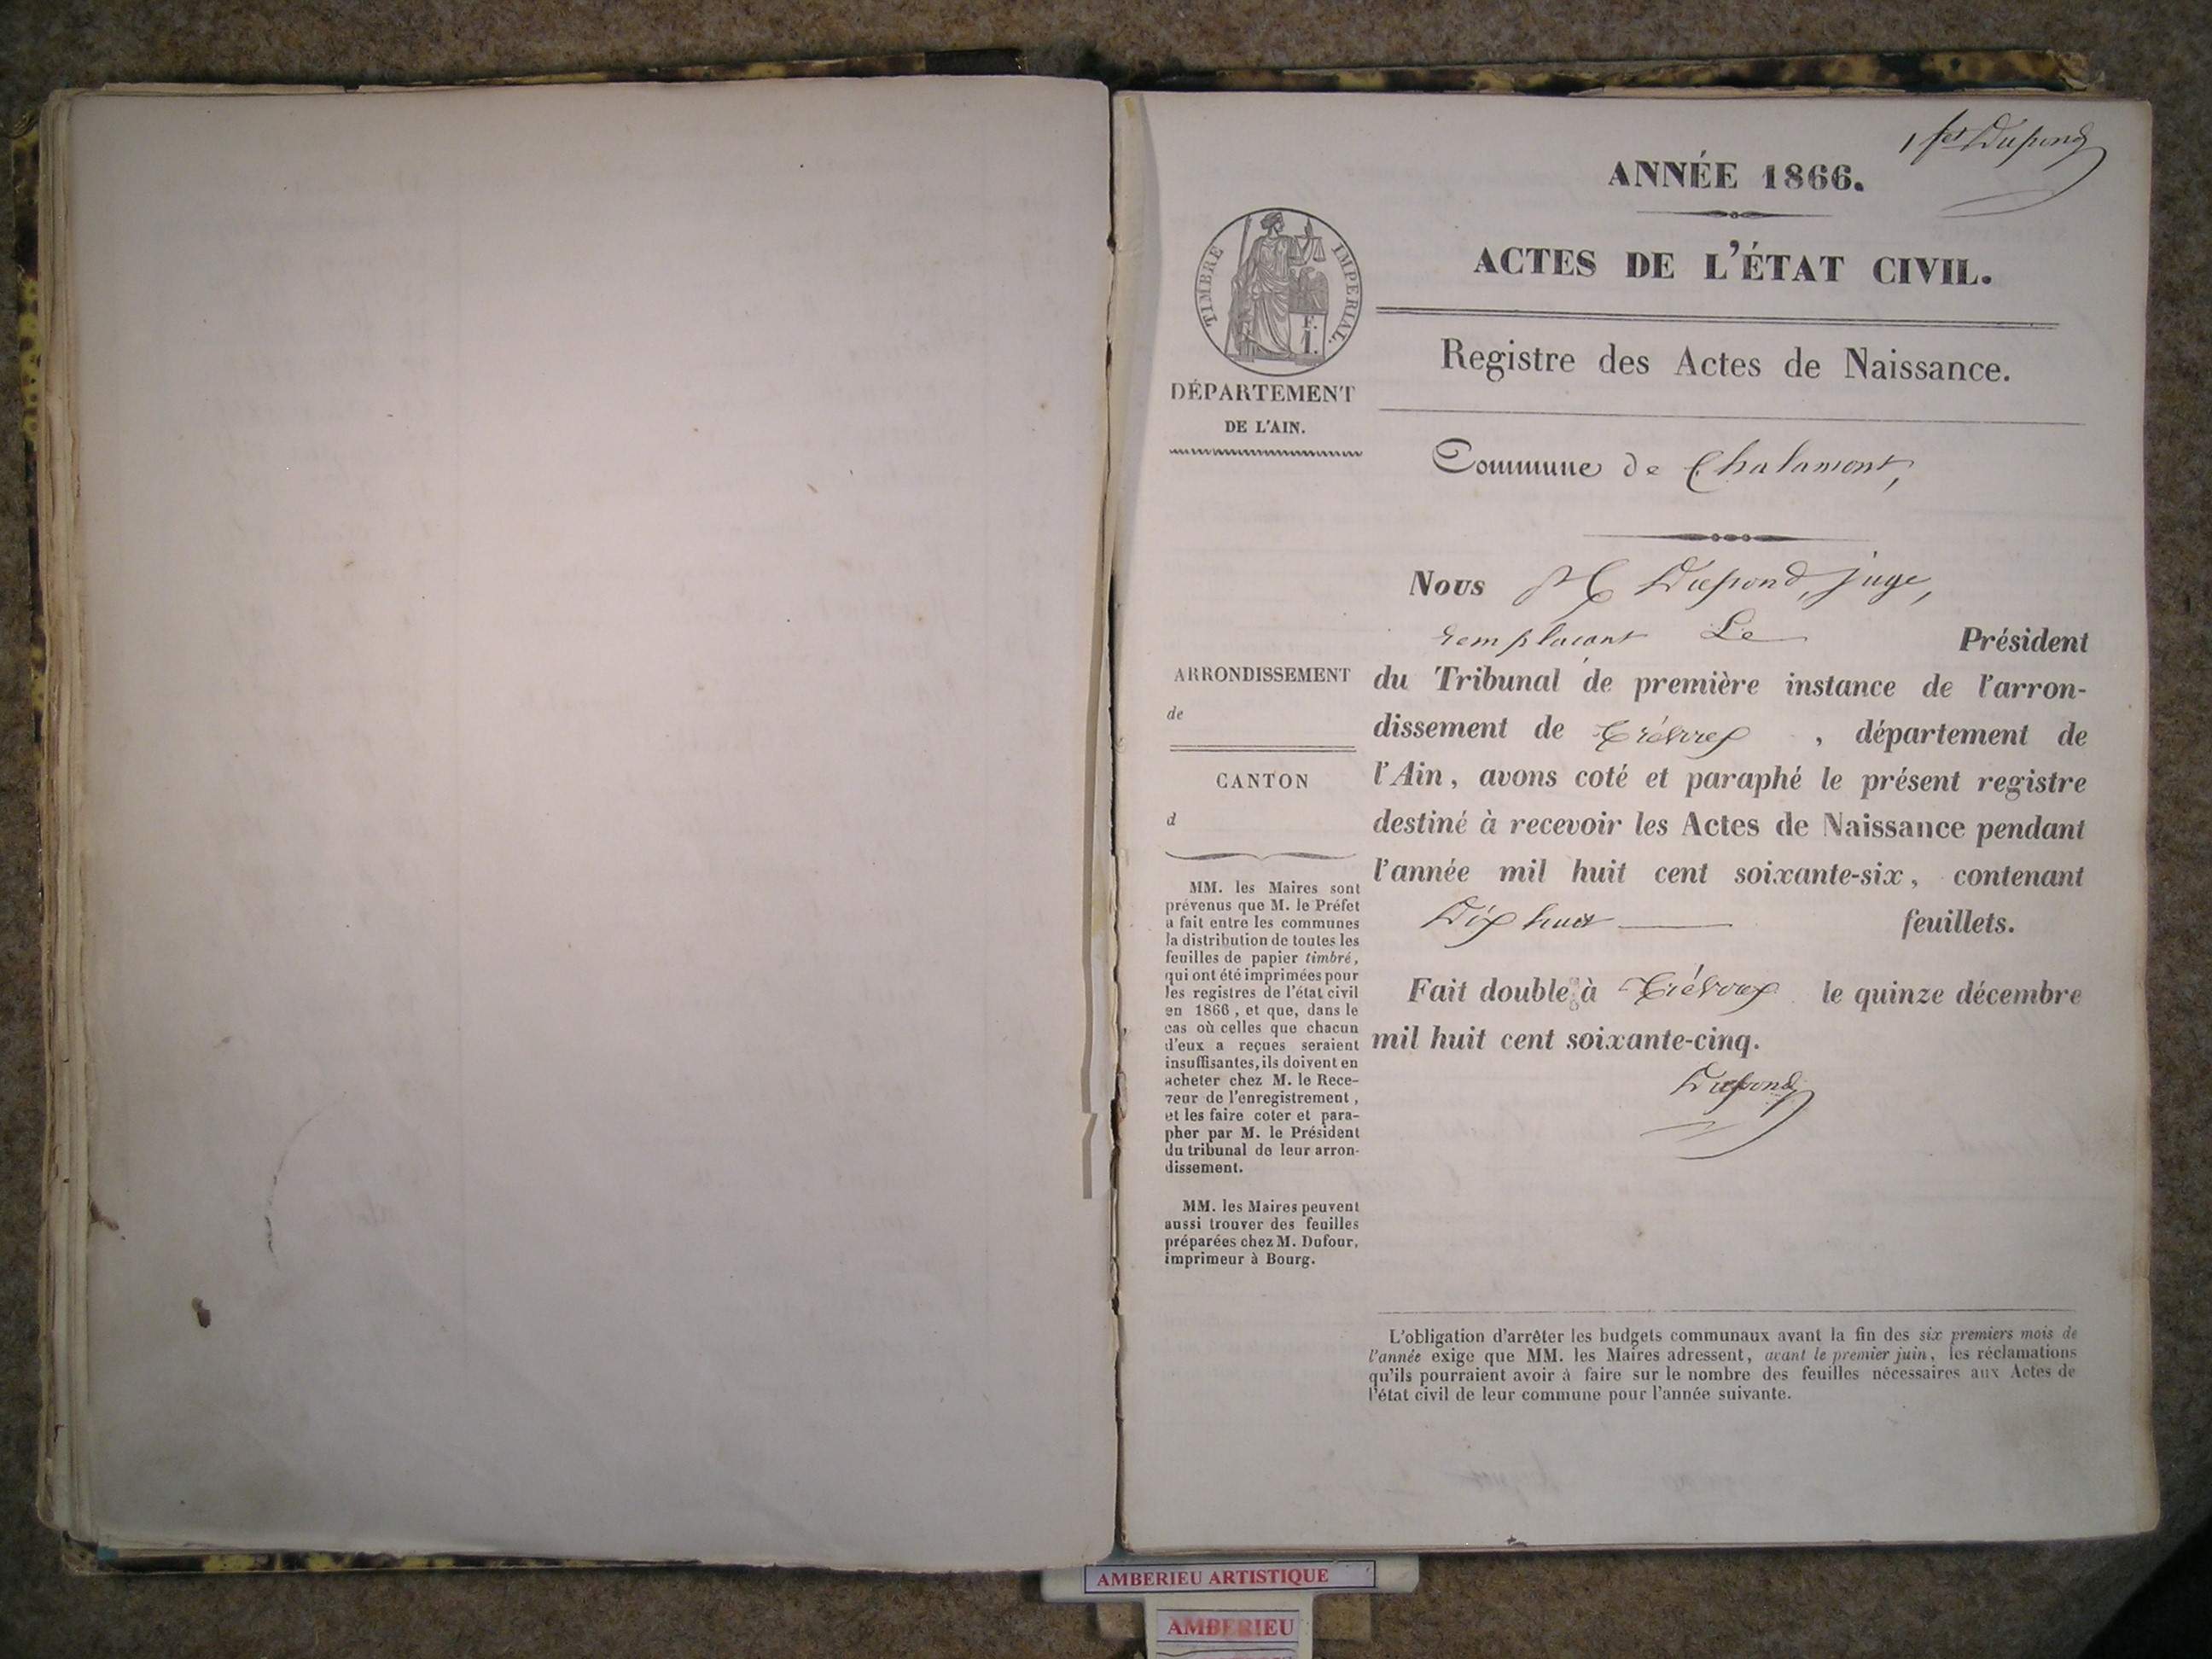 1 fet Dupond
ANNÉE 1866.
ACTES DE L'ÉTAT CIVIL.
TIMBRE IMPERIAL.
F.
1.
Registre des Actes de Naissance.
DÉPARTEMENT
DE L'AIN.
Commune de Chalamont,
Nous M Dupond, juge,
remplaçant Le Président
du Tribunal de première instance de l'arron-
dissement de Trévoux , département de
l'Ain, avons coté et paraphé le présent registre
destiné à recevoir les Actes de Naissance pendant
l'année mil huit cent soixante-six, contenant
Dix huit feuillets.
Fait double à Trévoux le quinze décembre
mil huit cent soixante-cinq.
Dupond
ARRONDISSEMENT
de
CANTON
d
MM. les Maires sont
prévenus que M. le Préfet
a fait entre les communes
la distribution de toutes les
feuilles de papier timbré,
qui ont été imprimées pour
les registres de l'état civil
en 1866, et que, dans le
cas où celles que chacun
d'eux a reçues seraient
insuffisantes, ils doivent en
acheter chez M. le Rece-
veur de l'enregistrement,
et les faire coter et para-
pher par M. le Président
du tribunal de leur arron-
dissement.
MM. les Maires peuvent
aussi trouver des feuilles
préparées chez M. Dufour,
imprimeur à Bourg.
L'obligation d'arrêter les budgets communaux avant la fin des six premiers mois de
l'année exige que MM. les Maires adressent, avant le premier juin, les réclamations
qu'ils pourraient avoir à faire sur le nombre des feuilles nécessaires aux Actes de
l'état civil de leur commune pour l'année suivante.
AMBERIEU ARTISTIQUE
AMBERIEU